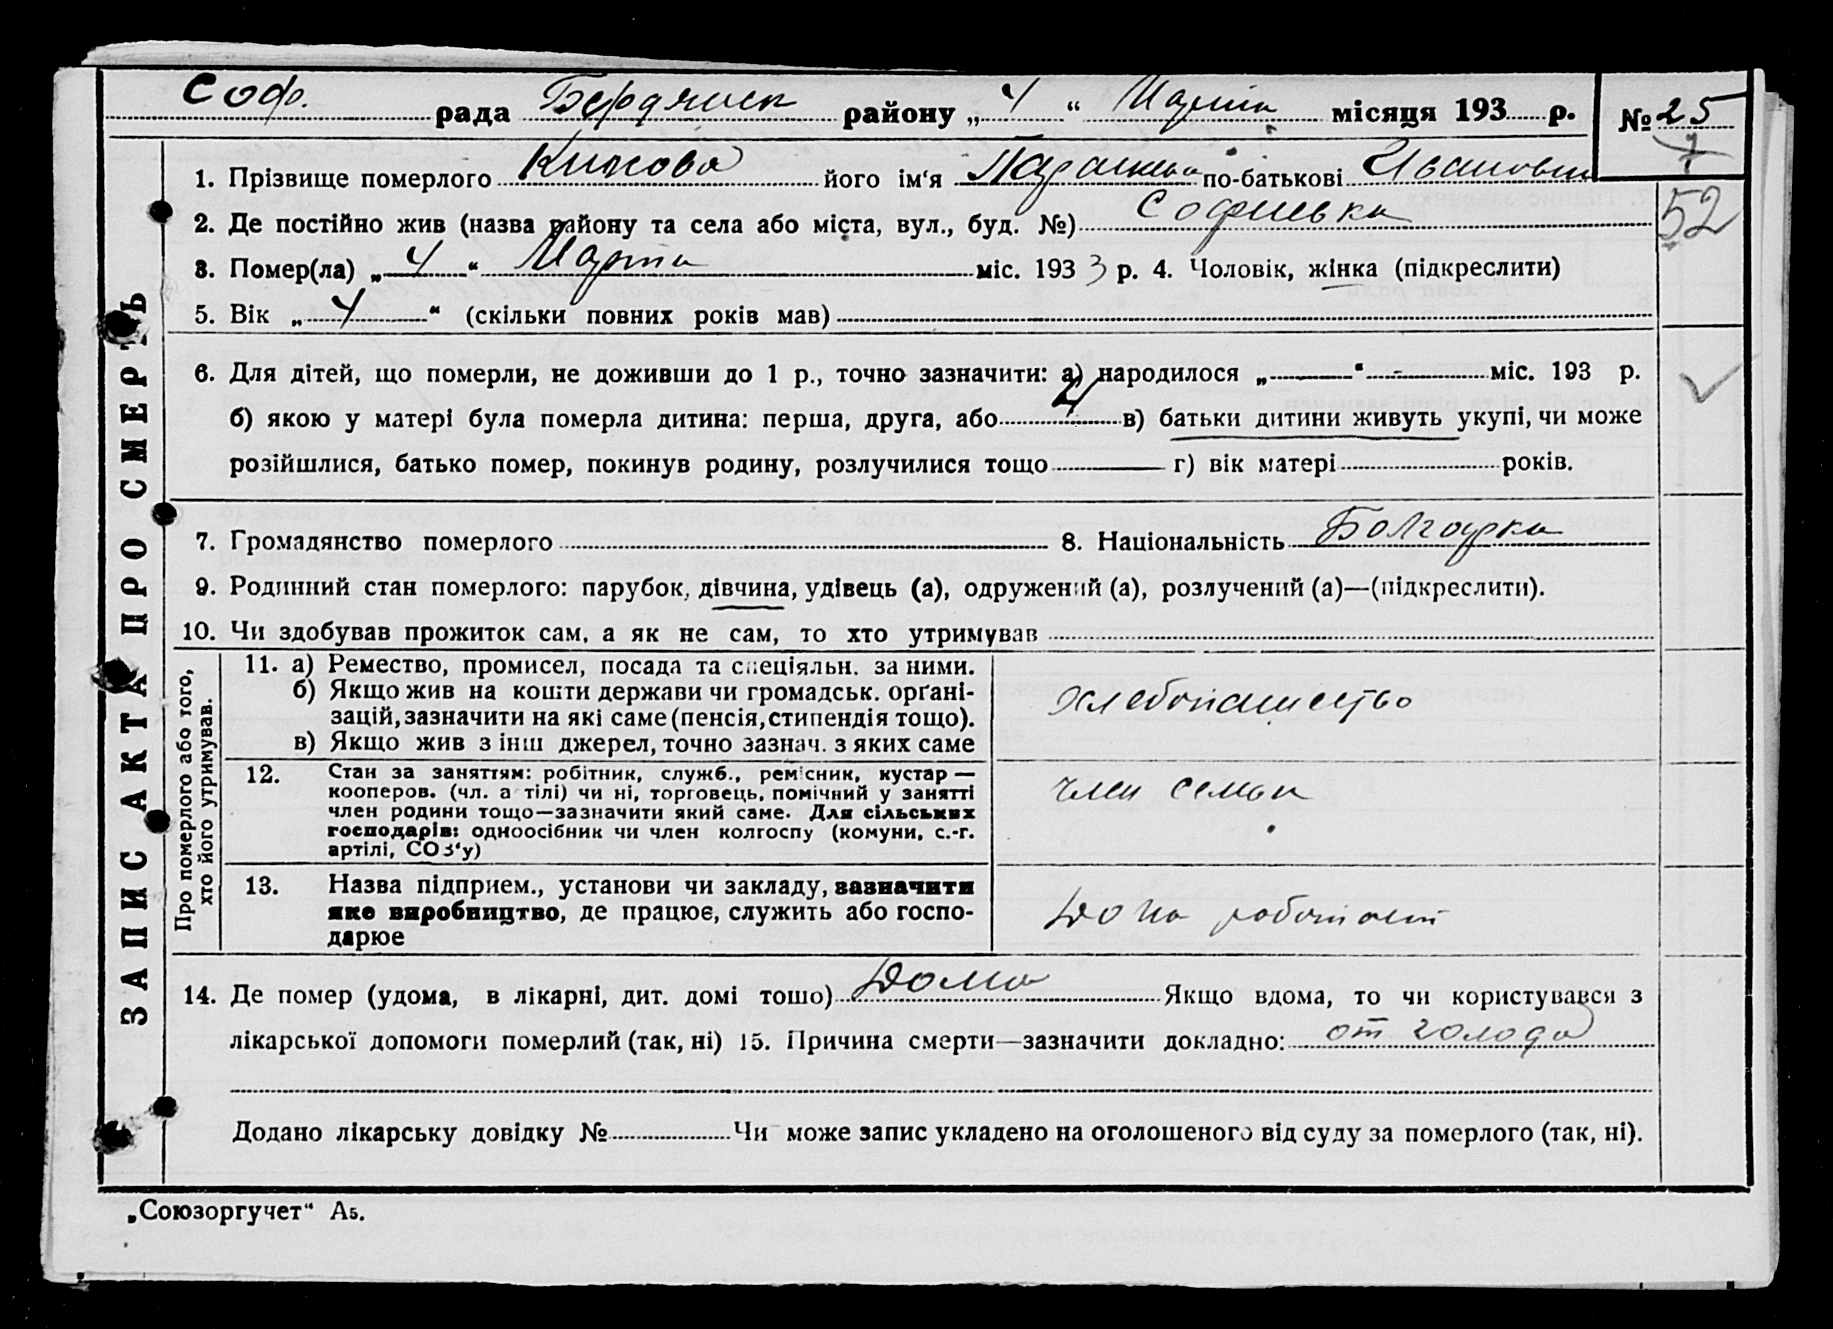 Соф. рада Бердянск району „ 4 “ Марта місяця 193 р. № 25
7
1. Прізвище померлого його ім‘я Парашка по-батькові Ивановна
52
2. Де постійно жив (назва району та села або міста, вул., буд. №) Софиевка
3. Помер(ла) „ 4 “ Марта міс. 193 3 р. 4. Чоловік, жінка (підкреслити)
5. Вік „ 4 “ (скільки повних років мав)
6. Для дітей, що померли, не доживши до 1 р., точно зазначити: а) народилося „ “ - міс. 193 р.
б) якою у матері була померла дитина: перша, друга, або 4 в) батьки дитини живуть укупі, чи може
розійшлися, батько помер, покинув родину, розлучилися тощо г) вік матері років.
7. Громадянство померлого 8. Національність Болгарка
9. Родинний стан померлого: парубок, дівчина, удівець (а), одружений (а), розлучений (а)—(підкреслити).
10. Чи здобував прожиток сам, а як не сам, то хто утримував
ЗАПИС АКТА ПРО СМЕРТЬ
Про померлого або того,
хто його утримував.
11. а) Ремество, промисел, посада та спеціяльн. за ними.
б) Якщо жив на кошти держави чи громадськ. орґані-
зацій, зазначити на які саме (пенсія, стипендія тощо).
в) Якщо жив з інш джерел, точно зазнач. з яких саме
хлебопашество
12. Стан за заняттям: робітник, служб., ремісник, кустар —
кооперов. (чл. а тілі) чи ні, торговець, помічний у занятті
член родини тощо—зазначити який саме. Для сільських
господарів: одноосібник чи член колгоспу (комуни, с.-г.
артілі, СОЗ‘у)
член семьи
13. Назва підприєм., установи чи закладу, зазначити
яке виробництво, де працює, служить або госпо-
дарює
работает
14. Де помер (удома, в лікарні, дит. домі тошо) Дома Якщо вдома, то чи користувався з
лікарської допомоги померлий (так, ні) 15. Причина смерти—зазначити докладно: от голода
Додано лікарську довідку № Чи може запис укладено на оголошеного від суду за померлого (так, ні).
„Союзоргучет“ А5.